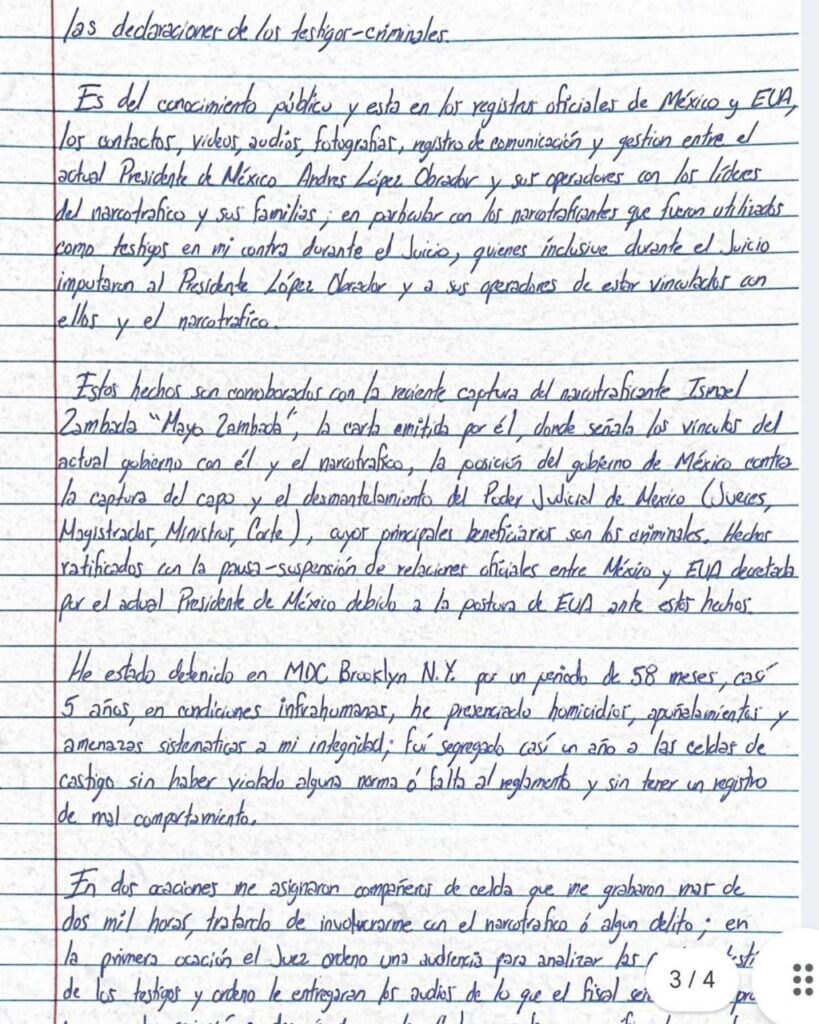 las declaraciones de los testigos-criminales.
Es del conocimiento público y esta en los registros oficiales de México y EUA,
los contactos, videos, audios, fotografias, registro de comunicación y gestion entre el
actual Presidente de México Andres López Obrador y sus operadores con los líderes
del narcotrafico y sus familias; en particular con los narcotraficantes que fueron utilizados
como testigos en mi contra durante el Juicio, quienes inclusive durante el Juicio
imputaron al Presidente López Obrador y a sus operadores de estar vinculados con
ellos y el narcotrafico.
Estos hechos son corroborados con la reciente captura del narcotraficante Ismael
Zambada "Mayo Zambada", la carta emitida por él, donde señala los vínculos del
actual gobierno con él y el narcotrafico, la posición del gobierno de México contra
la captura del capo y el desmantelamiento del Poder Judicial de Mexico (Jueces,
Magistrados, Ministros, Corte), cuyos principales beneficiarios son los criminales. Hechos
ratificados con la pausa-suspensión de relaciones oficiales entre México y EUA decretada
por el actual Presidente de México debido a la postura de EUA ante estos hechos.
He estado detenido en MDC Brooklyn N.Y. por un periodo de 58 meses, casí
5 años, en condiciones infrahumanas, he presenciado homicidios, apuñalamientos y
amenazas sistematicas a mi integridad; fuí segregado casí un año a las celdas de
castigo sin haber violado alguna norma ó falta al reglamento y sin tener un registro
de mal comportamiento.
En dos ocaciones me asignaron compañeros de celda que me grabaron mas de
dos mil horas, tratando de involucrarme con el narcotrafico ó algun delito; en
la primera ocación el Juez ordeno una audiencia para analizar las
de los testigos y ordeno le entregaran los audios de lo que el fiscal
3 / 4